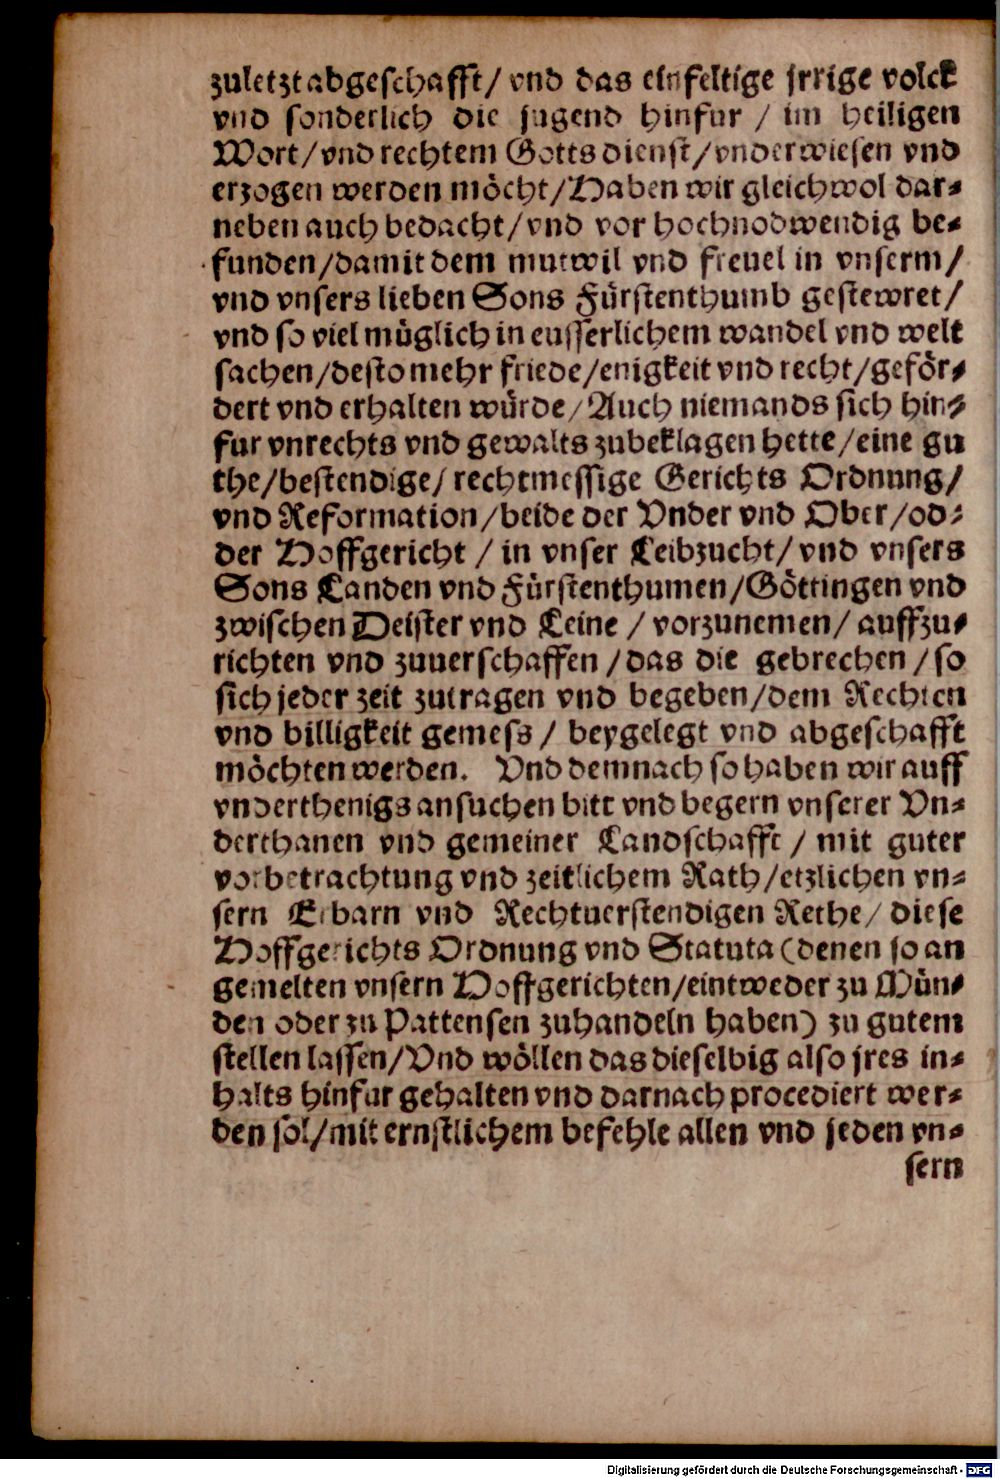 zuletzt abgeschafft/ vnd das einfeltige jrrige volck
vnd sonderlich die jugend hinfur / im heiligen
Wort/vnd rechtem Gottsdienst/vnderwiesen vnd
erzogen werden möcht/Haben wir gleichwol dar-
neben auch bedacht/vnd vor hochnodwendig be-
funden/damit dem mutwil vnd freuel in vnserm/
vnd vnsers lieben Sons Fürstenthumb gestewret/
vnd so viel müglich in eusserlichem wandel vnd welt
sachen/desto mehr friede/enigkeit vnd recht/geför-
dert vnd erhalten würde/Auch niemands sich hin-
fur vnrechts vnd gewalts zubeklagen hette/eine gu
the/bestendige/ rechtmessige Gerichts Ordnung/
vnd Reformation/beide der Vnder vnd Ober/od-
der Hoffgericht / in vnser Leibzucht/ vnd vnsers
Sons Landen vnd Fürstenthumen/Göttingen vnd
zwischen Deister vnd Leine / vorzunemen/ auffzu-
richten vnd zuuerschaffen /das die gebrechen /so
sich jeder zeit zutragen vnd begeben/dem Rechten
vnd billigkeit gemess / beygelegt vnd abgeschafft
möchten werden. Vnd demnach so haben wir auff
vnderthenigs ansuchen bitt vnd begern vnserer Vn-
derthanen vnd gemeiner Landschafft / mit guter
vorbetrachtung vnd zeitlichem Rath/etzlichen vn-
sern Erbarn vnd Rechtuerstendigen Rethe/ diese
Hoffgerichts Ordnung vnd Statuta (denen so an
gemelten vnsern Hoffgerichten/eintweder zu Mün-
den oder zu Pattensen zuhandeln haben) zu gutem
stellen lassen/Vnd wöllen das dieselbig also jres in-
halts hinfur gehalten vnd darnach procediert wer-
den sol/mit ernstlichem befehle allen vnd jeden vn-
sern
Digitalisierung gefördert durch die Deutsche Forschungsgemeinschaft - DFG